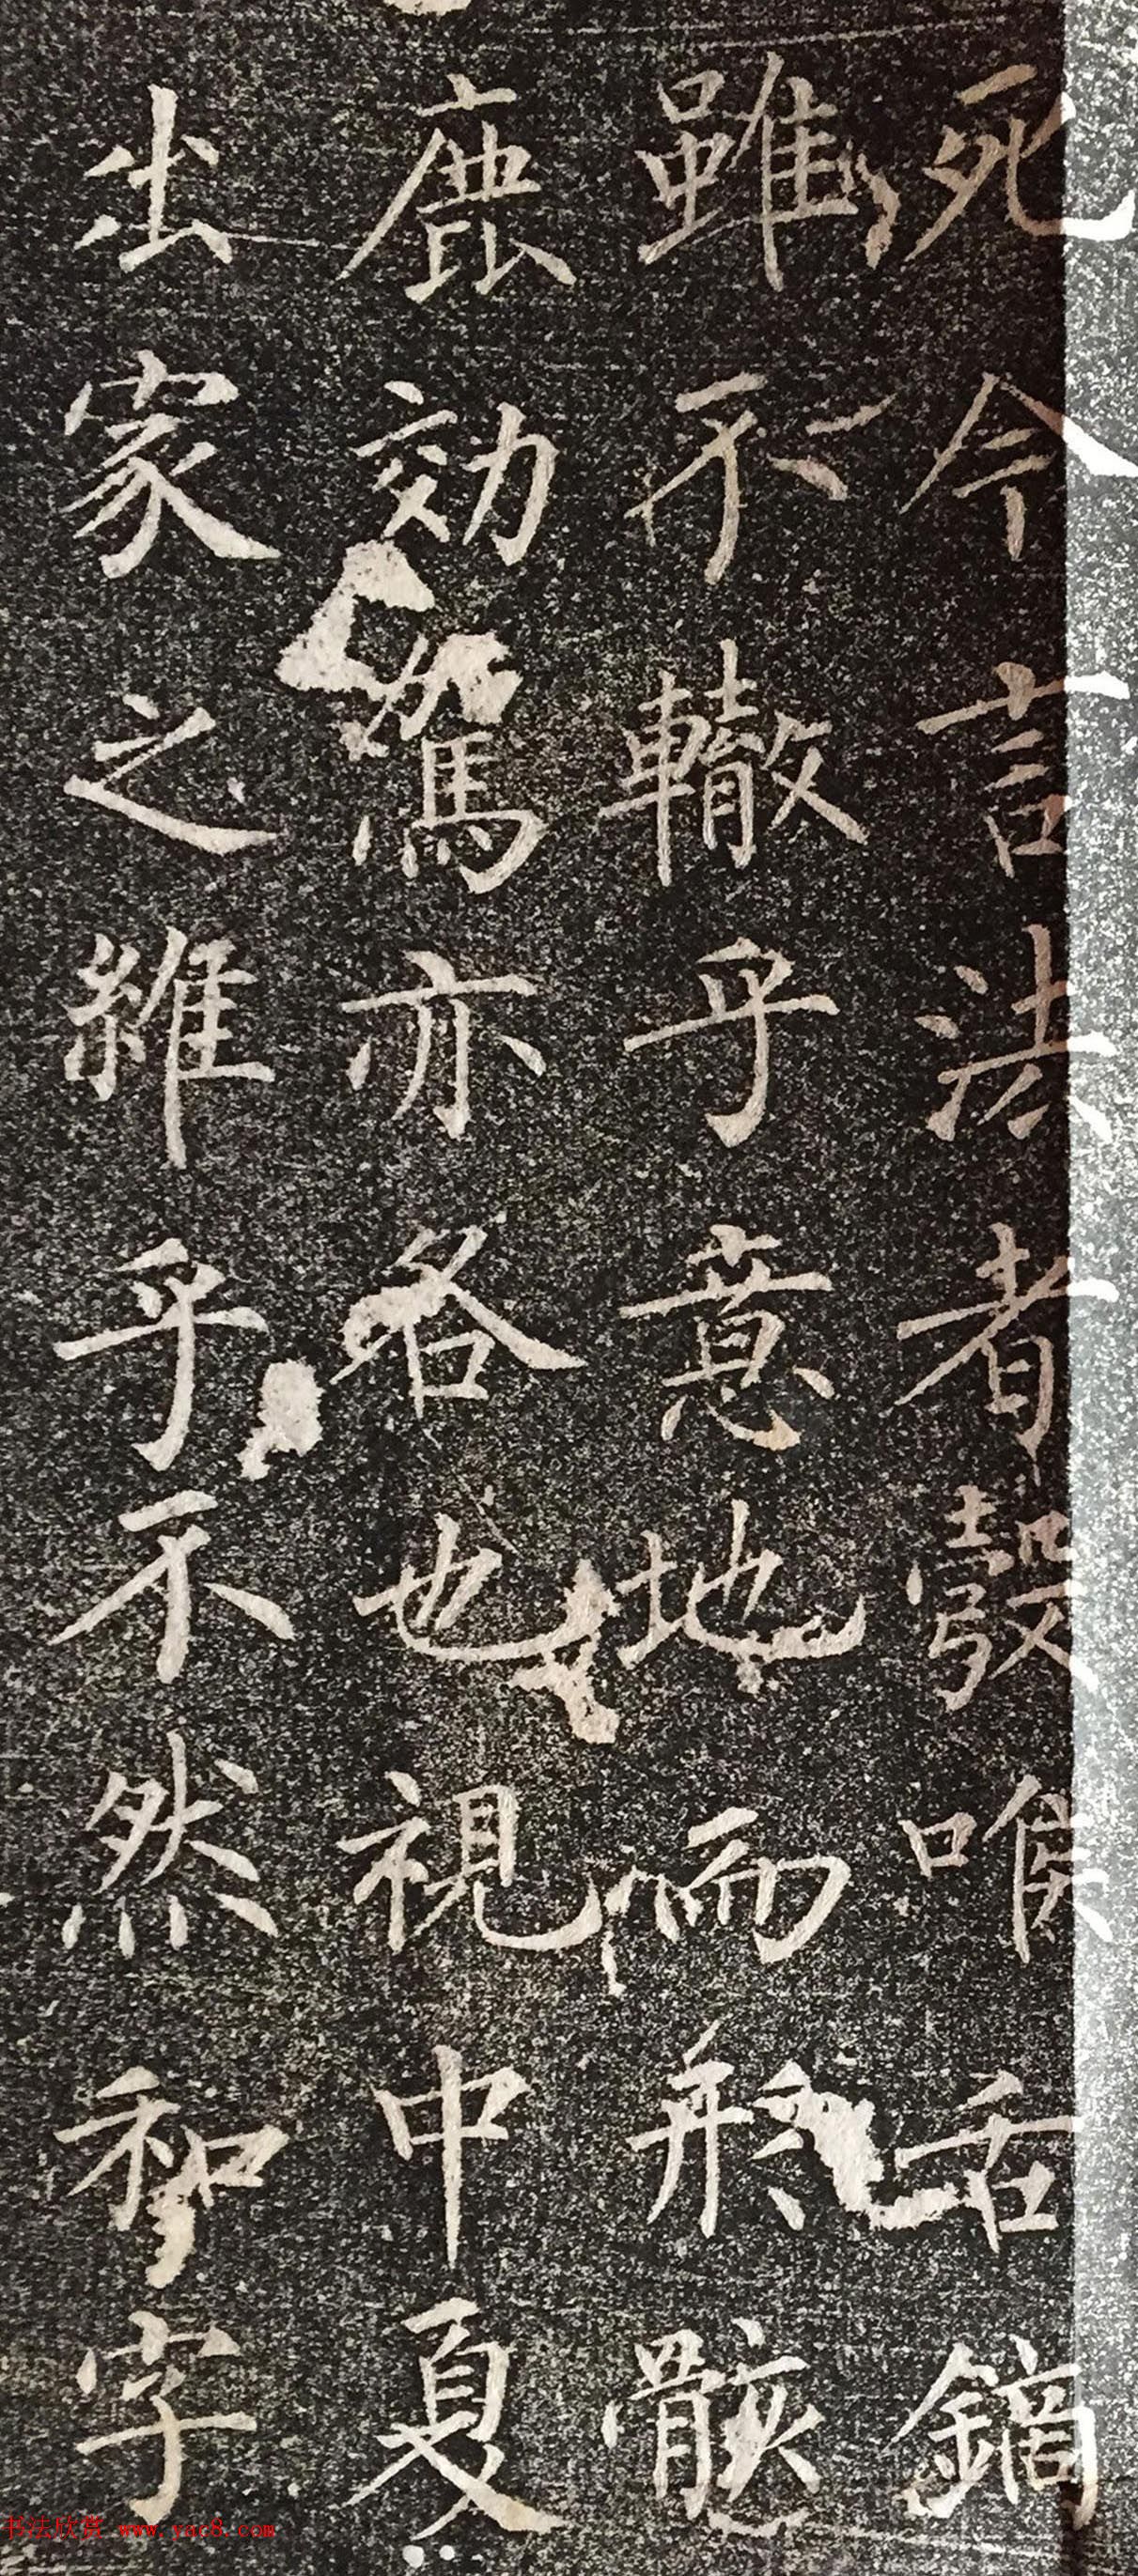 死今言法者彀喉舌鏑
雖不轍乎意地而形骸
鹿効駕亦各也視中夏
出家之雖乎不然初字
书法欣赏 www.yac8.com